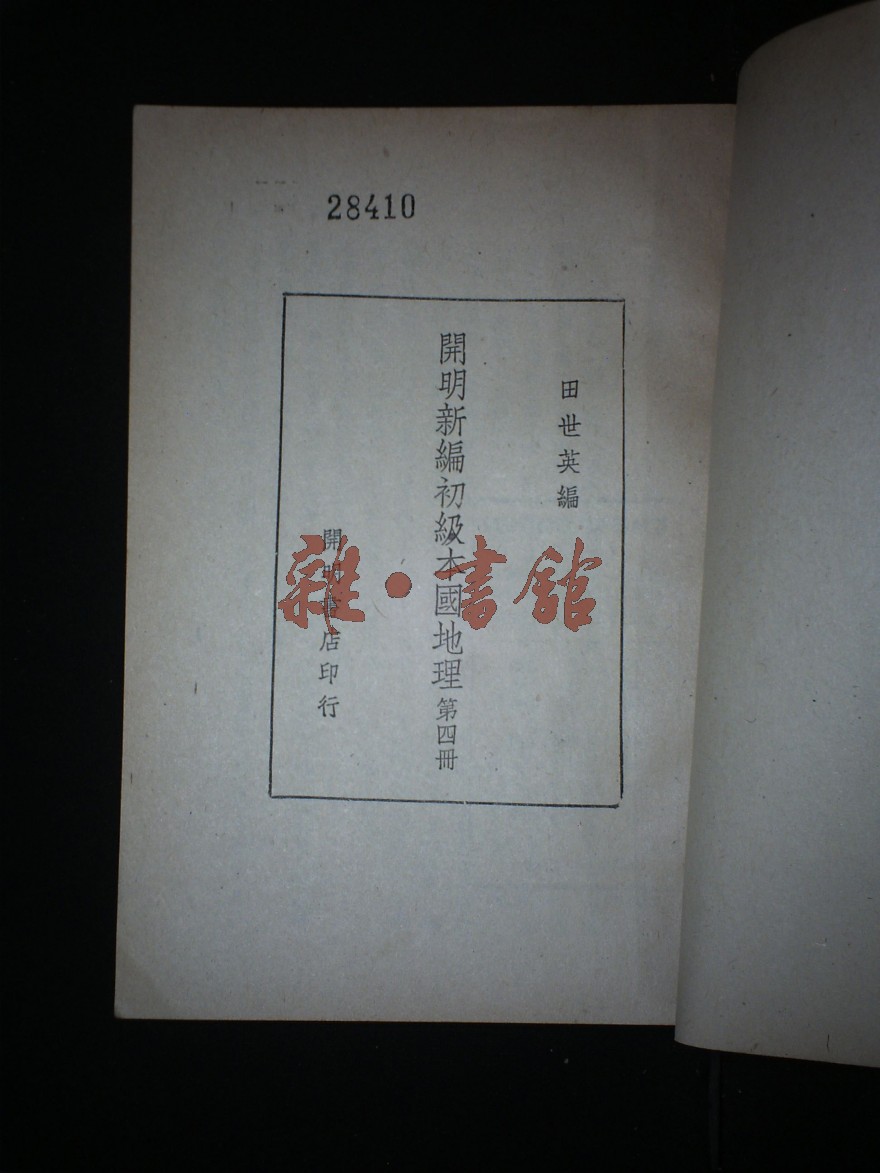 28410
田世英編
開明新編初級本國地理 第四冊
開明書店印行
雜·書館